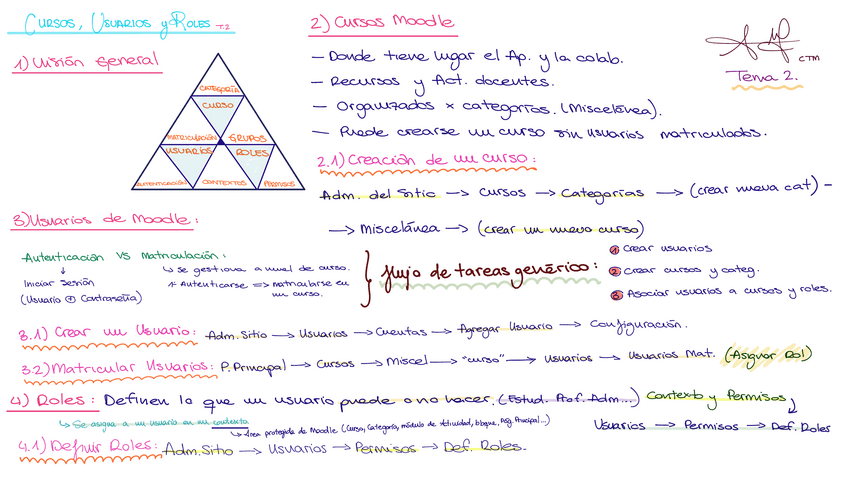 CURSOS, USUARIOS y ROLES T.2
1) Visión General
CATEGORÍA
CURSO
MATRICULACIÓN GRUPOS
USUARIOS ROLES
AUTENTICACIÓN CONTEXTOS PERMISOS
2) Cursos Moodle
CTM
Tema 2.
— Donde tiene lugar el Ap. y la colab.
— Recursos y Act. docentes.
— Organizados x categorías. (Miscelánea).
— Puede crearse un curso sin usuarios matriculados.
2.1) Creación de un curso:
Adm. del Sitio → Cursos → Categorías → (crear nueva cat) —
→ Miscelánea → (crear un nuevo curso)
3) Usuarios de Moodle:
Autenticación VS Matriculación:
↓
Iniciar Sesión
(Usuario ⊕ Contraseña)
↳ Se gestiona a nivel de curso.
* Autenticarse ≠> matricularse en
un curso.
flujo de tareas genérico:
1 Crear usuarios
2 Crear cursos y categ.
3 Asociar usuarios a cursos y roles.
3.1) Crear un Usuario: Adm. Sitio → Usuarios → Cuentas → Agregar Usuario → Configuración.
3.2) Matricular Usuarios: P. Principal → Cursos → Miscel → "curso" → Usuarios → Usuarios Mat. (Asignar Rol)
4) Roles: Definen lo que un usuario puede o no hacer. (Estud. Prof. Adm...) Contexto y Permisos
↳ Se asigna a un usuario en un contexto.
↳ Área protegida de Moodle (Curso, Categoría, módulo de actividad, bloque, Pág. Principal...)
Usuarios → Permisos → Def. Roles
4.1) Definir Roles: Adm. Sitio → Usuarios → Permisos → Def. Roles.